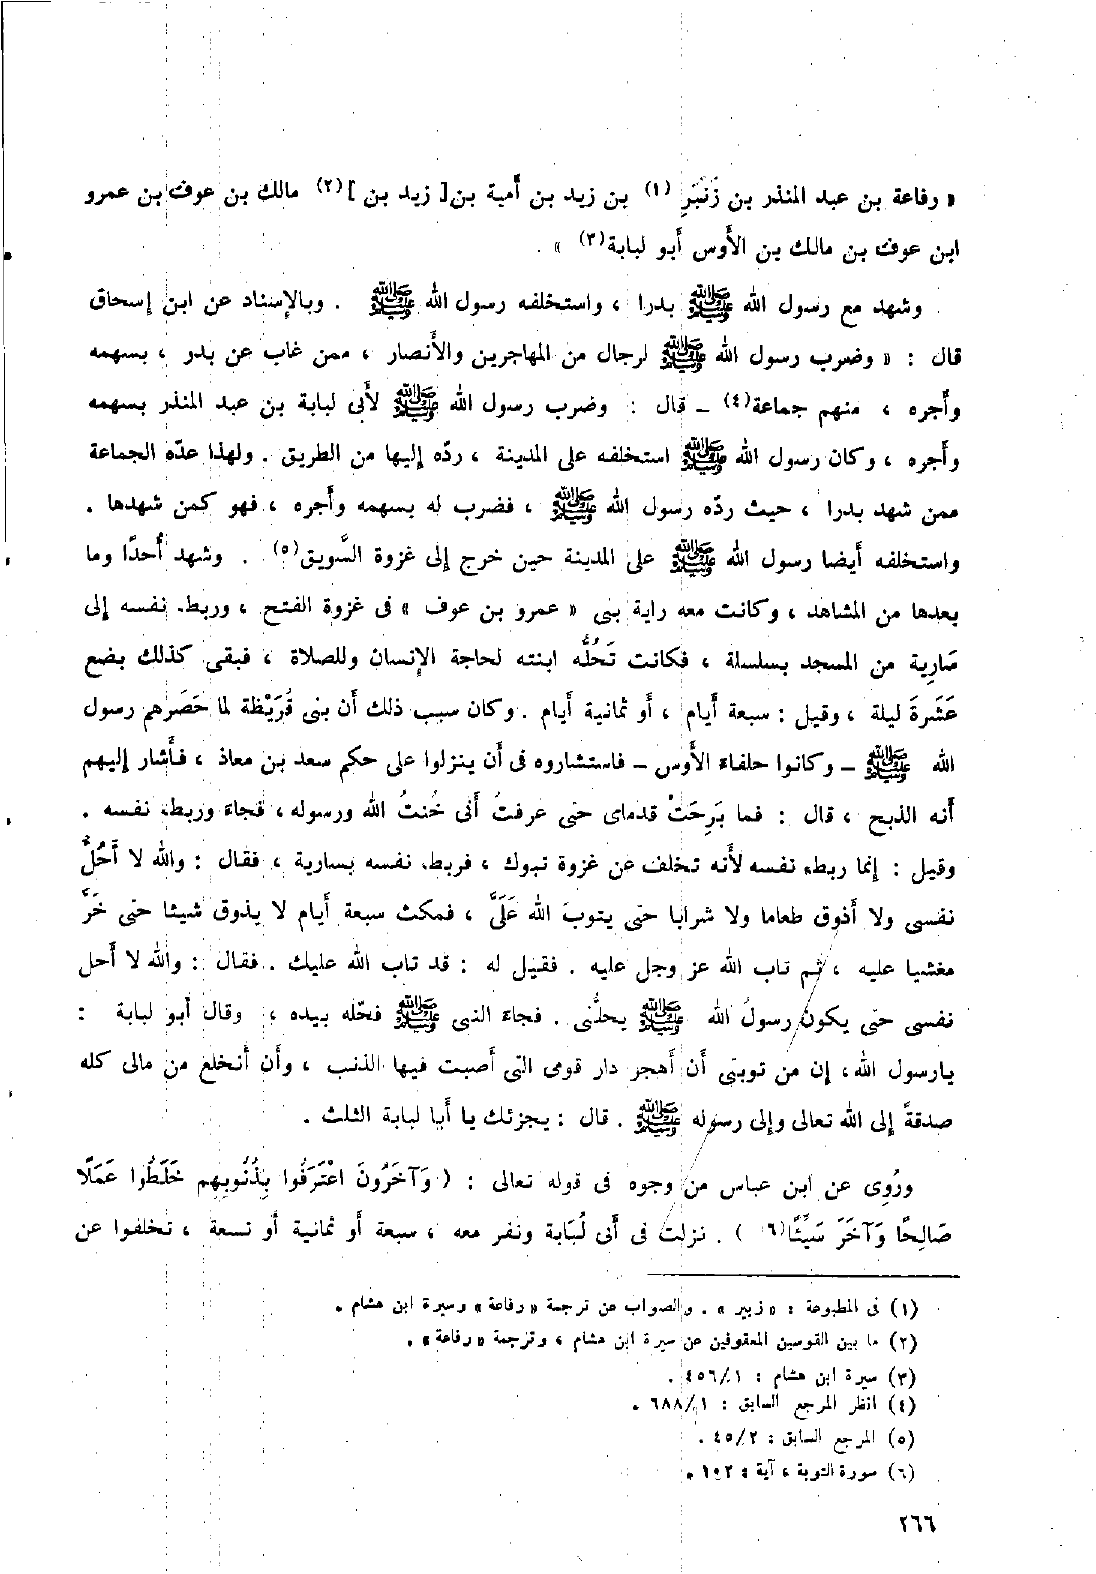 « رفاعة بن عبد المنذر بن زَنْبَرِ (١) بن زيد بن أمية بن [ زيد بن ](٢) مالك بن عوف بن عمرو
ابن عوف بن مالك بن الأوس أبو لبابة(٣) » .
وشهد مع رسول الله ﷺ بدرا ، واستخلفه رسول الله ﷺ . وبالإسناد عن ابن إسحاق
قال : « وضرب رسول الله ﷺ لرجال من المهاجرين والأنصار ، ممن غاب عن بدر ، بسهمه
وأجره ، منهم جماعة(٤) – قال : وضرب رسول الله ﷺ لأبى لبابة بن عبد المنذر بسهمه
وأجره ، وكان رسول الله ﷺ استخلفه على المدينة ، ردّه إليها من الطريق . ولهذا عدّه الجماعة
ممن شهد بدرا ، حيث ردّه رسول الله ﷺ ، فضرب له بسهمه وأجره ، فهو كمن شهدها .
واستخلفه أيضا رسول الله ﷺ على المدينة حين خرج إلى غزوة السَّويق(٥) . وشهد أُحدًا وما
بعدها من المشاهد ، وكانت معه راية بنى « عمرو بن عوف » فى غزوة الفتح ، وربط نفسه إلى
سَارِية من المسجد بسلسلة ، فكانت تَحُلُّه ابنته لحاجة الإنسان وللصلاة ، فبقى كذلك بضع
عَشَرةَ ليلة ، وقيل : سبعة أيام ، أو ثمانية أيام . وكان سبب ذلك أن بنى قُرَيْظة لما حَصَرهم رسول
الله ﷺ – وكانوا حلفاء الأوس – فاستشاروه فى أن ينزلوا على حكم سعد بن معاذ ، فأشار إليهم
أنه الذبح ، قال : فما بَرِحَتْ قدماى حتى عرفتُ أنى خُنتُ الله ورسوله ، فجاء وربط نفسه .
وقيل : إنما ربط نفسه لأنه تخلف عن غزوة تبوك ، فربط نفسه بسارية ، فقال : والله لا أَحُلُّ
نفسى ولا أذوق طعاما ولا شرابا حتى يتوبَ الله عَلَىَّ ، فمكث سبعة أيام لا يذوق شيئا حتى خَرَّ
مغشيا عليه ، ثم تاب الله عز وجل عليه . فقيل له : قد تاب الله عليك . فقال : والله لا أحل
نفسى حتى يكون رسولُ الله ﷺ يحلُّنى . فجاء النبى ﷺ فحلّه بيده ، وقال أبو لبابة :
يارسول الله ، إن من توبتى أن أهجر دار قومى التى أصبت فيها الذنب ، وأن أنخلع من مالى كله
صدقةً إلى الله تعالى وإلى رسوله ﷺ . قال : يجزئك يا أبا لبابة الثلث .
ورُوِى عن ابن عباس من وجوه فى قوله تعالى : ( وَآخَرُونَ اعْتَرَفُوا بِذُنُوبِهِم خَلَطُوا عَمَلًا
صَالِحًا وَآخَرَ سَيِّئًا(٦) ) . نزلت فى أبى لُبَابة ونفر معه ، سبعة أو ثمانية أو تسعة ، تخلفوا عن
(١) فى المطبوعة : « زبير » . والصواب عن ترجمة « رفاعة » وسيرة ابن هشام .
(٢) ما بين القوسين المعقوفين عن سيرة ابن هشام ، وترجمة « رفاعة » .
(٣) سيرة ابن هشام : ٤٥٦/١ .
(٤) انظر المرجع السابق : ٦٨٨/١ .
(٥) المرجع السابق : ٤٥/٢ .
(٦) سورة التوبة ، آية : ١٠٢ .
٢٦٦